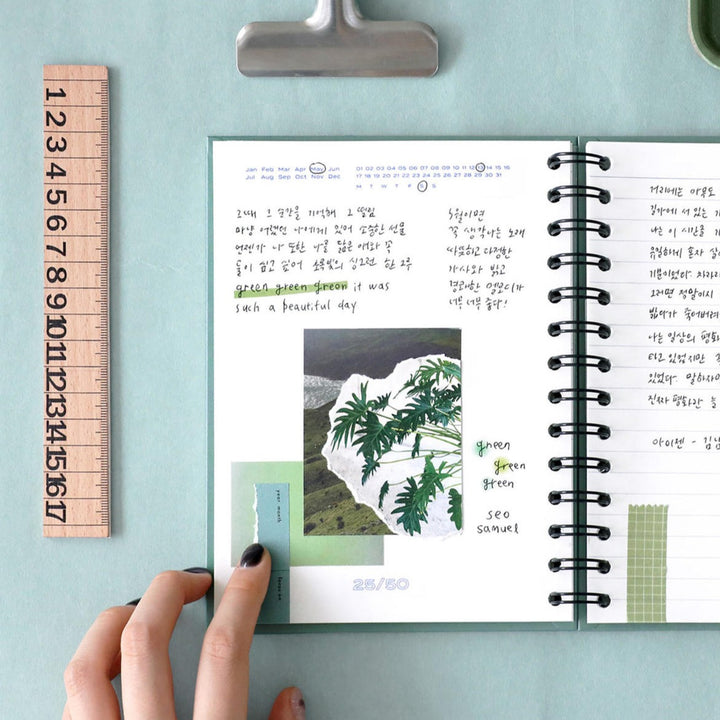 1 2 3 4 5 6 7 8 9 10 11 12 13 14 15 16 17
Jan Feb Mar Apr May Jun
Jul Aug Sep Oct Nov Dec
01 02 03 04 05 06 07 08 09 10 11 12 13 14 15 16
17 18 19 20 21 22 23 24 25 26 27 28 29 30 31
M T W T F S S
그때 그 순간을 기억해 그 떨림
마냥 어렸던 나에게 있어 소중한 선물
언젠가 나 또한 나를 닮은 애와 꼭
둘이 쉬고 싶어 초록빛의 싱그런 한 그루
green green green it was
such a beautiful day
5월이면
꼭 생각나는 노래
따뜻하고 다정한
가사와 밝고
경쾌한 멜로디가
너무 너무 좋다!
green
green
green
seo
samuel
your month
25/50
거리에는 아무도
길가에 서 있는
나는 이 시간을
유일하게 혼자
기분이었다.
그러면 정말이지
밟다가 죽어버려
나는 일상의 평화
타고 있었지만
있었다. 말하자면
진짜 평화란 늘
아이젠 - 김남